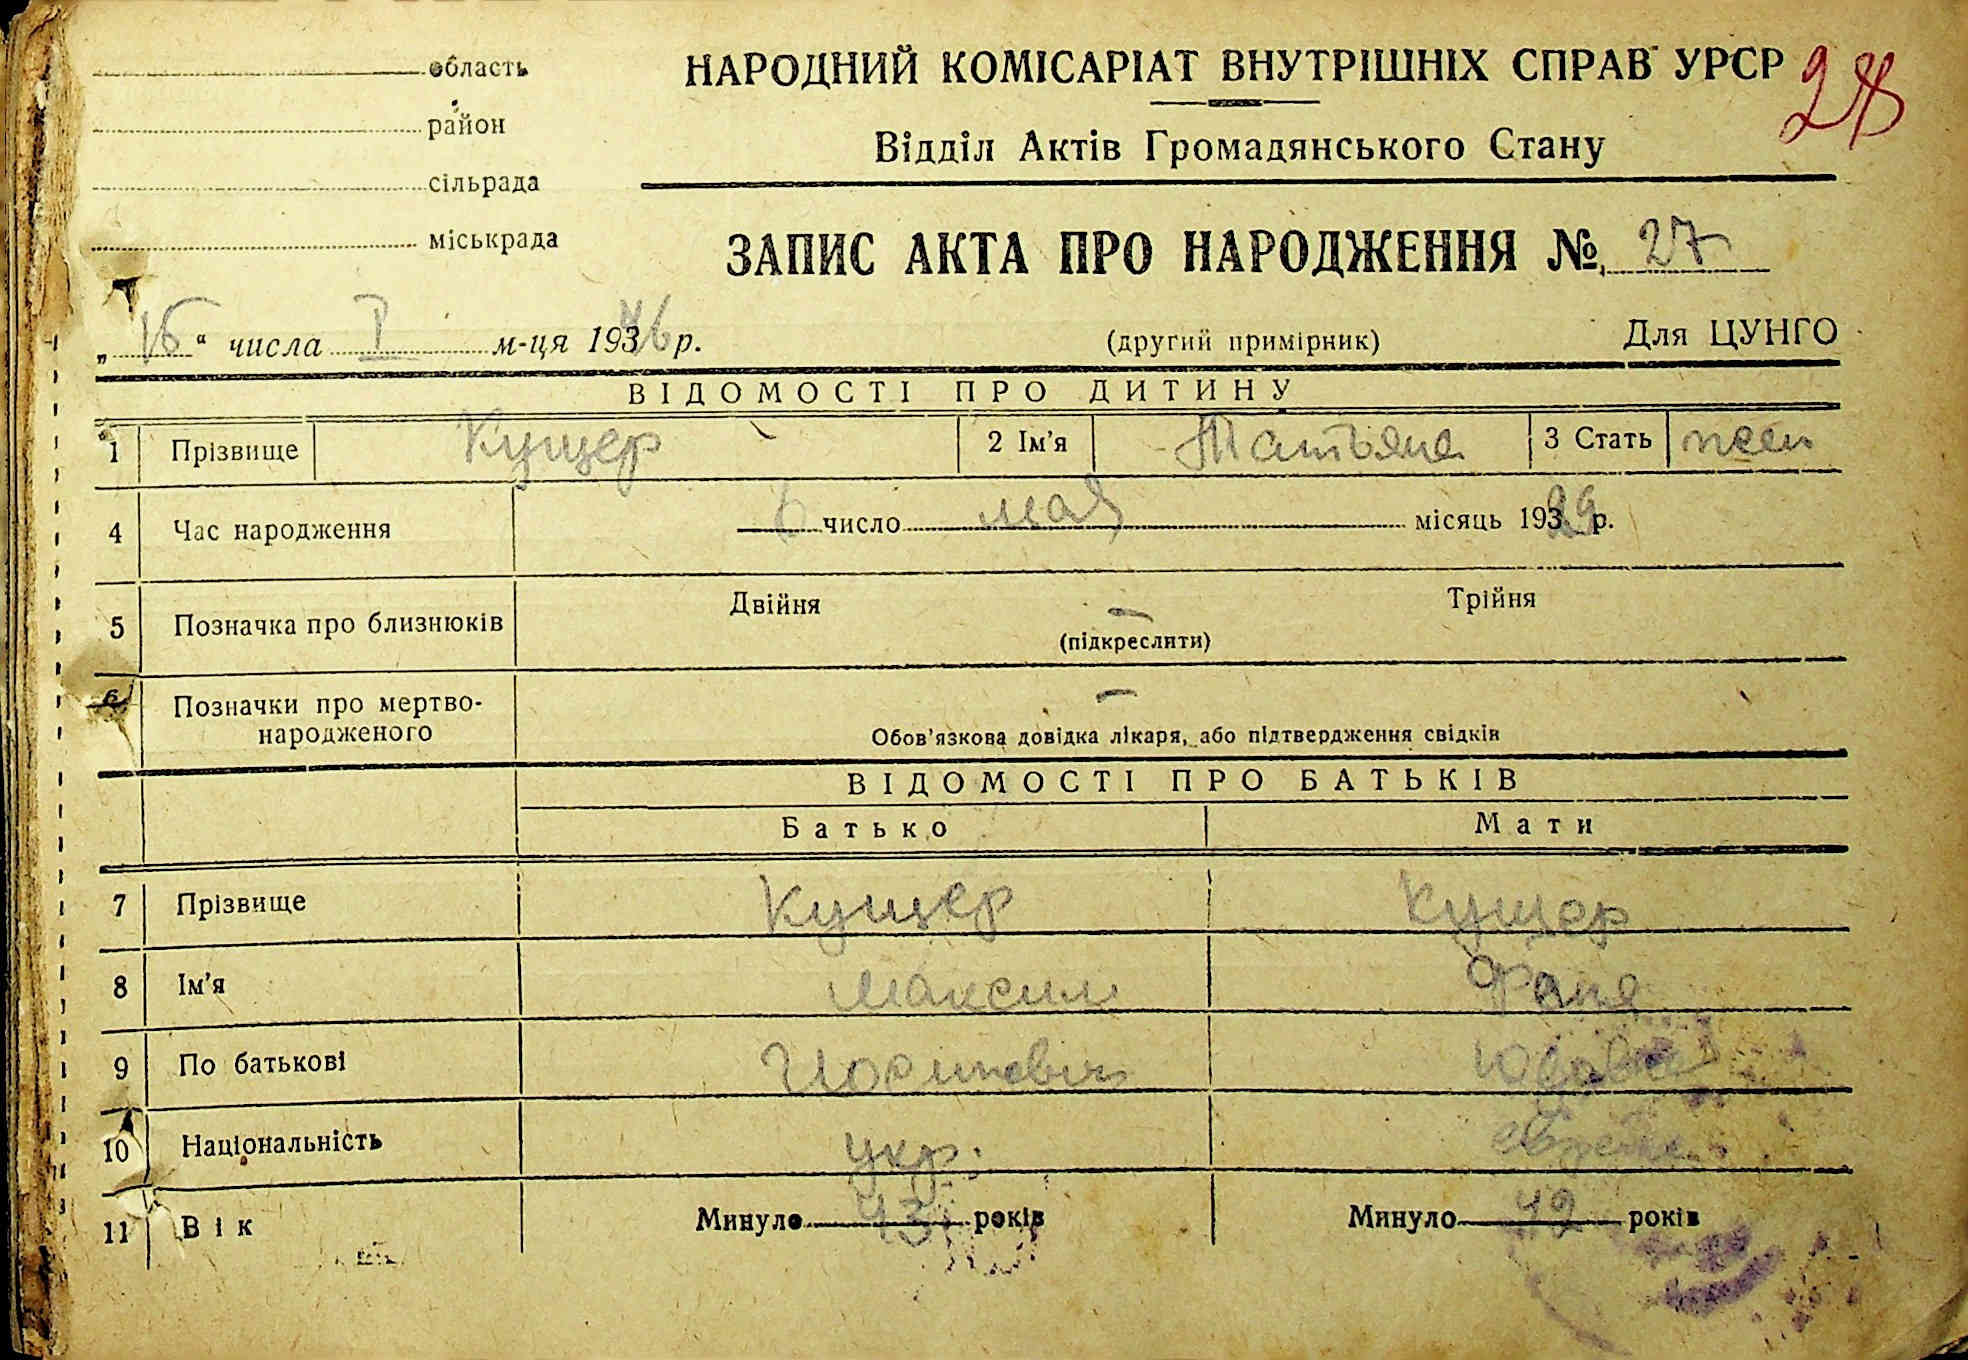 область
район
сільрада
міськрада
НАРОДНИЙ КОМІСАРІАТ ВНУТРІШНІХ СПРАВ УРСР 28
Відділ Актів Громадянського Стану
ЗАПИС АКТА ПРО НАРОДЖЕННЯ № 27
„ 16 “ числа I м-ця 193 46 р. (другий примірник) Для ЦУНГО
ВІДОМОСТІ ПРО ДИТИНУ
1 Прізвище Кущер 2 Ім'я Татьяна 3 Стать жен
4 Час народження 6 число мая місяць 193 29 р.
5 Позначка про близнюків Двійня — Трійня
(підкреслити)
6 Позначки про мертво-
народженого —
Обов'язкова довідка лікаря, або підтвердження свідків
ВІДОМОСТІ ПРО БАТЬКІВ
Батько Мати
7 Прізвище Кущер Кущер
8 Ім'я Максим Фаня
9 По батькові Иосипович
10 Національність укр. еврейка
11 Вік Минуло 43 років Минуло 42 років